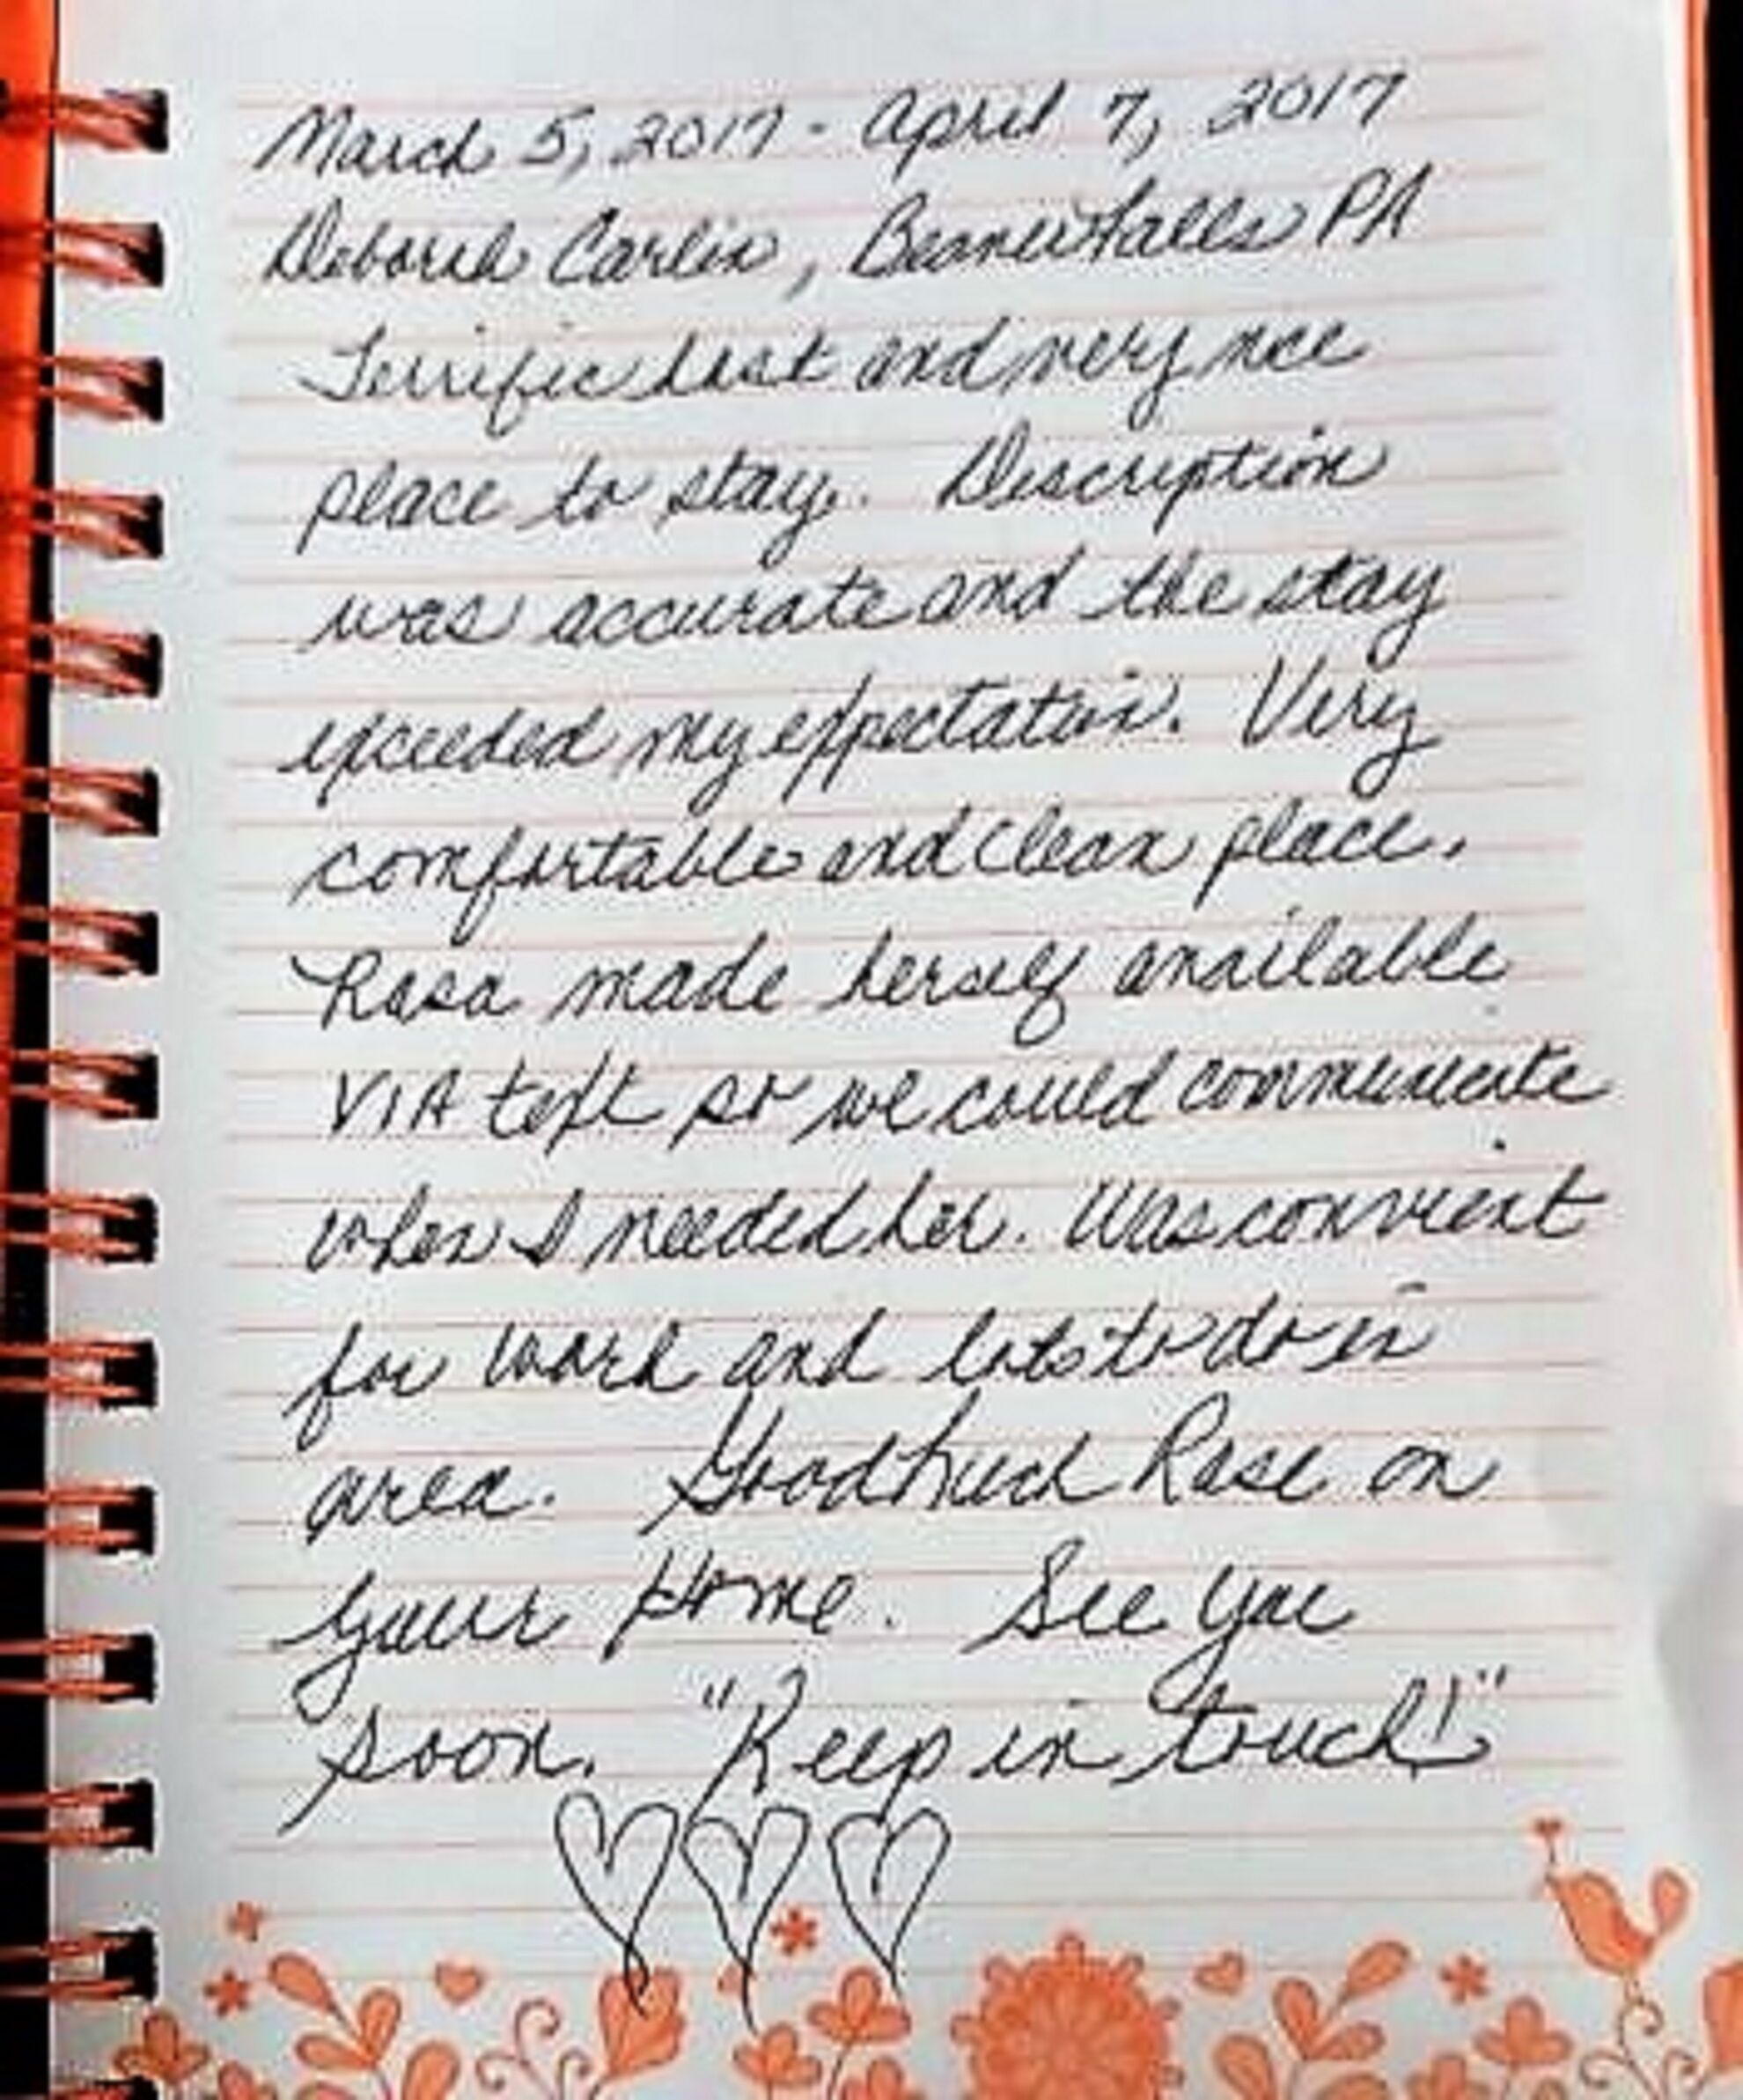 March 5, 2017 - April 7, 2017
Deborah Carlin, Beaver Falls PA
Terrific host and very nice
place to stay. Description
was accurate and the stay
exceeded my expectation. Very
comfortable and clean place.
Rosa made herself available
VIA text so we could communicate
when I needed her. Was convient
for work and lots to do in
area. Good Luck Rose on
your Home. See you
soon. "Keep in touch!"